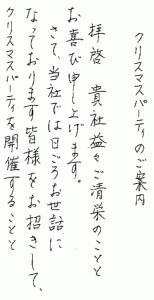 クリスマスパーティのご案内
拝啓 貴社益々ご清栄のことと
お喜び申し上げます。
さて、当社では日ごろお世話に
なっております皆様をお招きして、
クリスマスパーティを開催することと